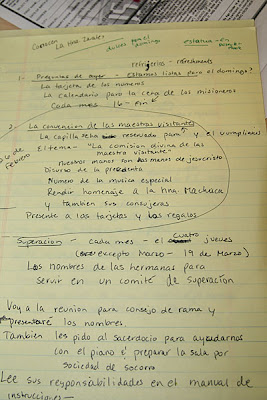 Oración La Hna. Zavales
dulces para el domingo
estaca - en
refrijerios - refreshments
1- Preguntas de ayer - estamos listas para el domingo?
La tarjeta de los nomeros
La calendario para la cena de los misioneros
Cada mes 16 - fin
2- La convencion de las maestras visitantes
La capilla esta reservado para y el cumplieños
6 de febrero
El tema - "La comision divina de las
maestra visitante"
Nuestras manos son las manos de jesucristo
Disurso de la presidenta
Número de la musica especial
Rendir homenaje a la hna. Machaca
y tambien sus consejeras
Presente a los tarjetas y los regalos
Superacion - cada mes - el cuatro jueves
(excepto Marzo - 19 de Marzo)
Los nombres de las hermanas para
servir en un comité de superación
Voy a la reunion para consejo de rama y
presentaré los nombres
Tambien les pido al sacerdocio para ayudarnos
con el piano y preparar la sala por
sociedad de socorro
Lee sus responsabilidades en el manual de
instrucciones -